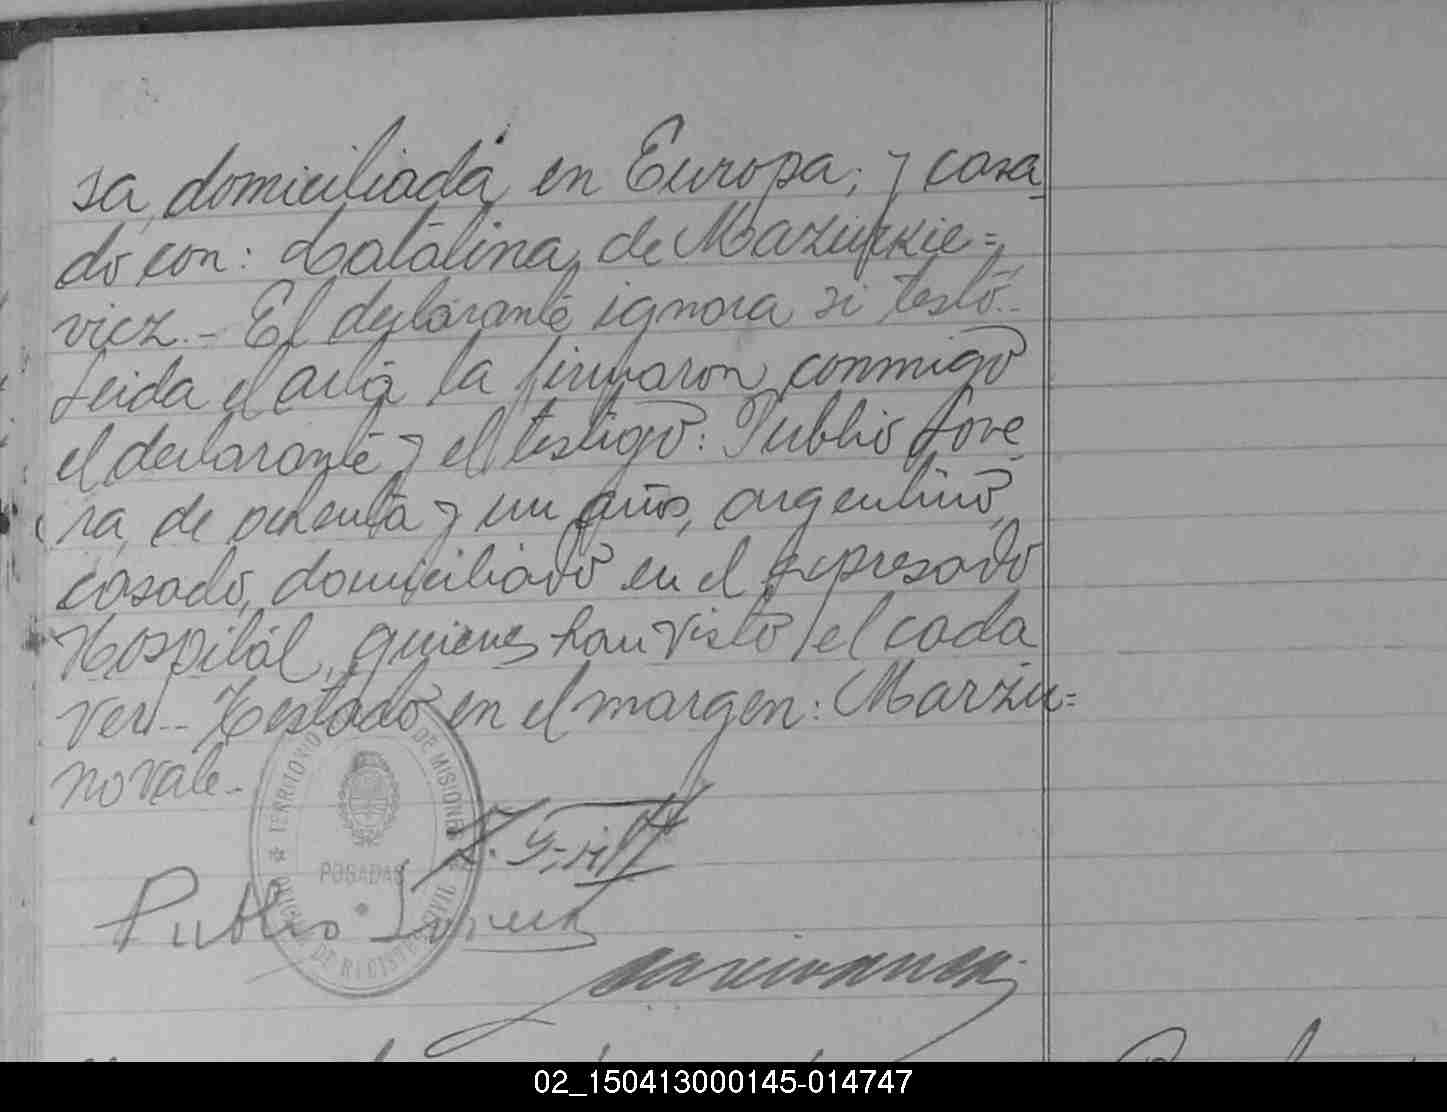 sa, domiciliada en Europa; y casa-
do con: Catalina de Mazurkie=
vicz.- El declarante ignora si testó.-
Leida el acta la firmaron conmigo
el declarante y el testigo: Publio Love
ra, de ochenta y un años, argentino,
casado, domiciliado en el expresado
Hospital, quienes han visto el cada
ver.- Testado en el margen: Marzu=
no vale.-
TERRITORIO DE MISIONES
POSADAS
OFICINA DE REGISTRO CIVIL
Publio Lovera
02_150413000145-014747